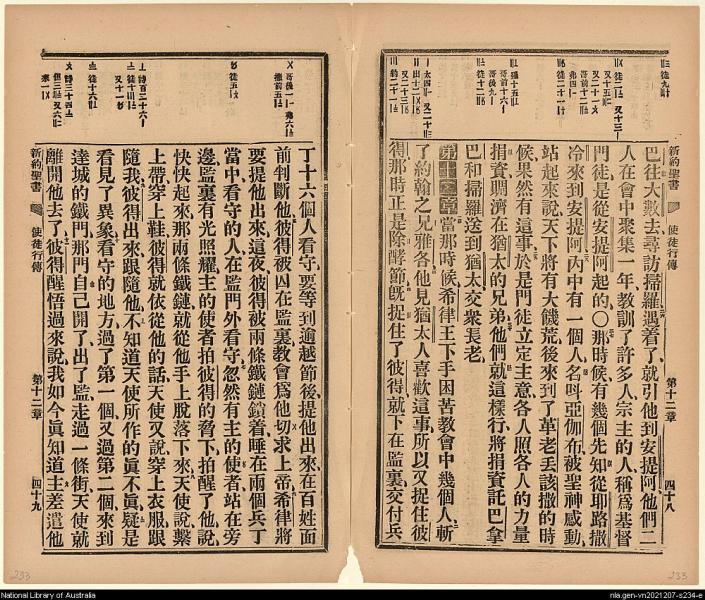 巴往大數去尋訪掃羅遇着了就引他到安提阿他們二
人在會中聚集一年教訓了許多人宗主的人稱爲基督
門徒是從安提阿起的〇那時候有幾個先知從耶路撒
冷來到安提阿內中有一個人名呌亞伽布被聖神感動
站起來說天下將有大饑荒後來到了革老丟該撒的時
候果然有這事於是門徒立定主意各人照各人的力量
捐資賙濟在猶太的兄弟他們就這樣行將捐資託巴拿
巴和掃羅送到猶太交衆長老
第十二章當那時候希律王下手困苦教會中幾個人斬
了約翰之兄雅各他見猶太人喜歡這事所以又捉住彼
得那時正是除酵節旣捉住了彼得就下在監裏交付兵
新約聖書
使徒行傳
第十二章
四十八
丁十六個人看守要等到逾越節後提他出來在百姓面
前判斷他彼得被囚在監裏教會爲他切求上帝希律將
要提他出來這夜彼得被兩條鐵鏈鎖着睡在兩個兵丁
當中看守的人在監門外看守忽然有主的使者站在旁
邊監裏有光照耀主的使者拍彼得的脅下拍醒了他說
快快起來那兩條鐵鏈就從他手上脫落下來天使說繫
上帶穿上鞋彼得就依從他的話天使又說穿上衣服跟
隨我彼得出來跟隨他不知道天使所作的眞不眞疑是
看見了異象看守的地方過了第一個又過第二個來到
達城的鐵門那門自己開了出了監走過一條街天使就
離開他去了彼得醒悟過來說我如今眞知道主差遣他
新約聖書
使徒行傳
第十二章
四十九
233
233
National Library of Australia
nla.gen-vn2021207-s234-e